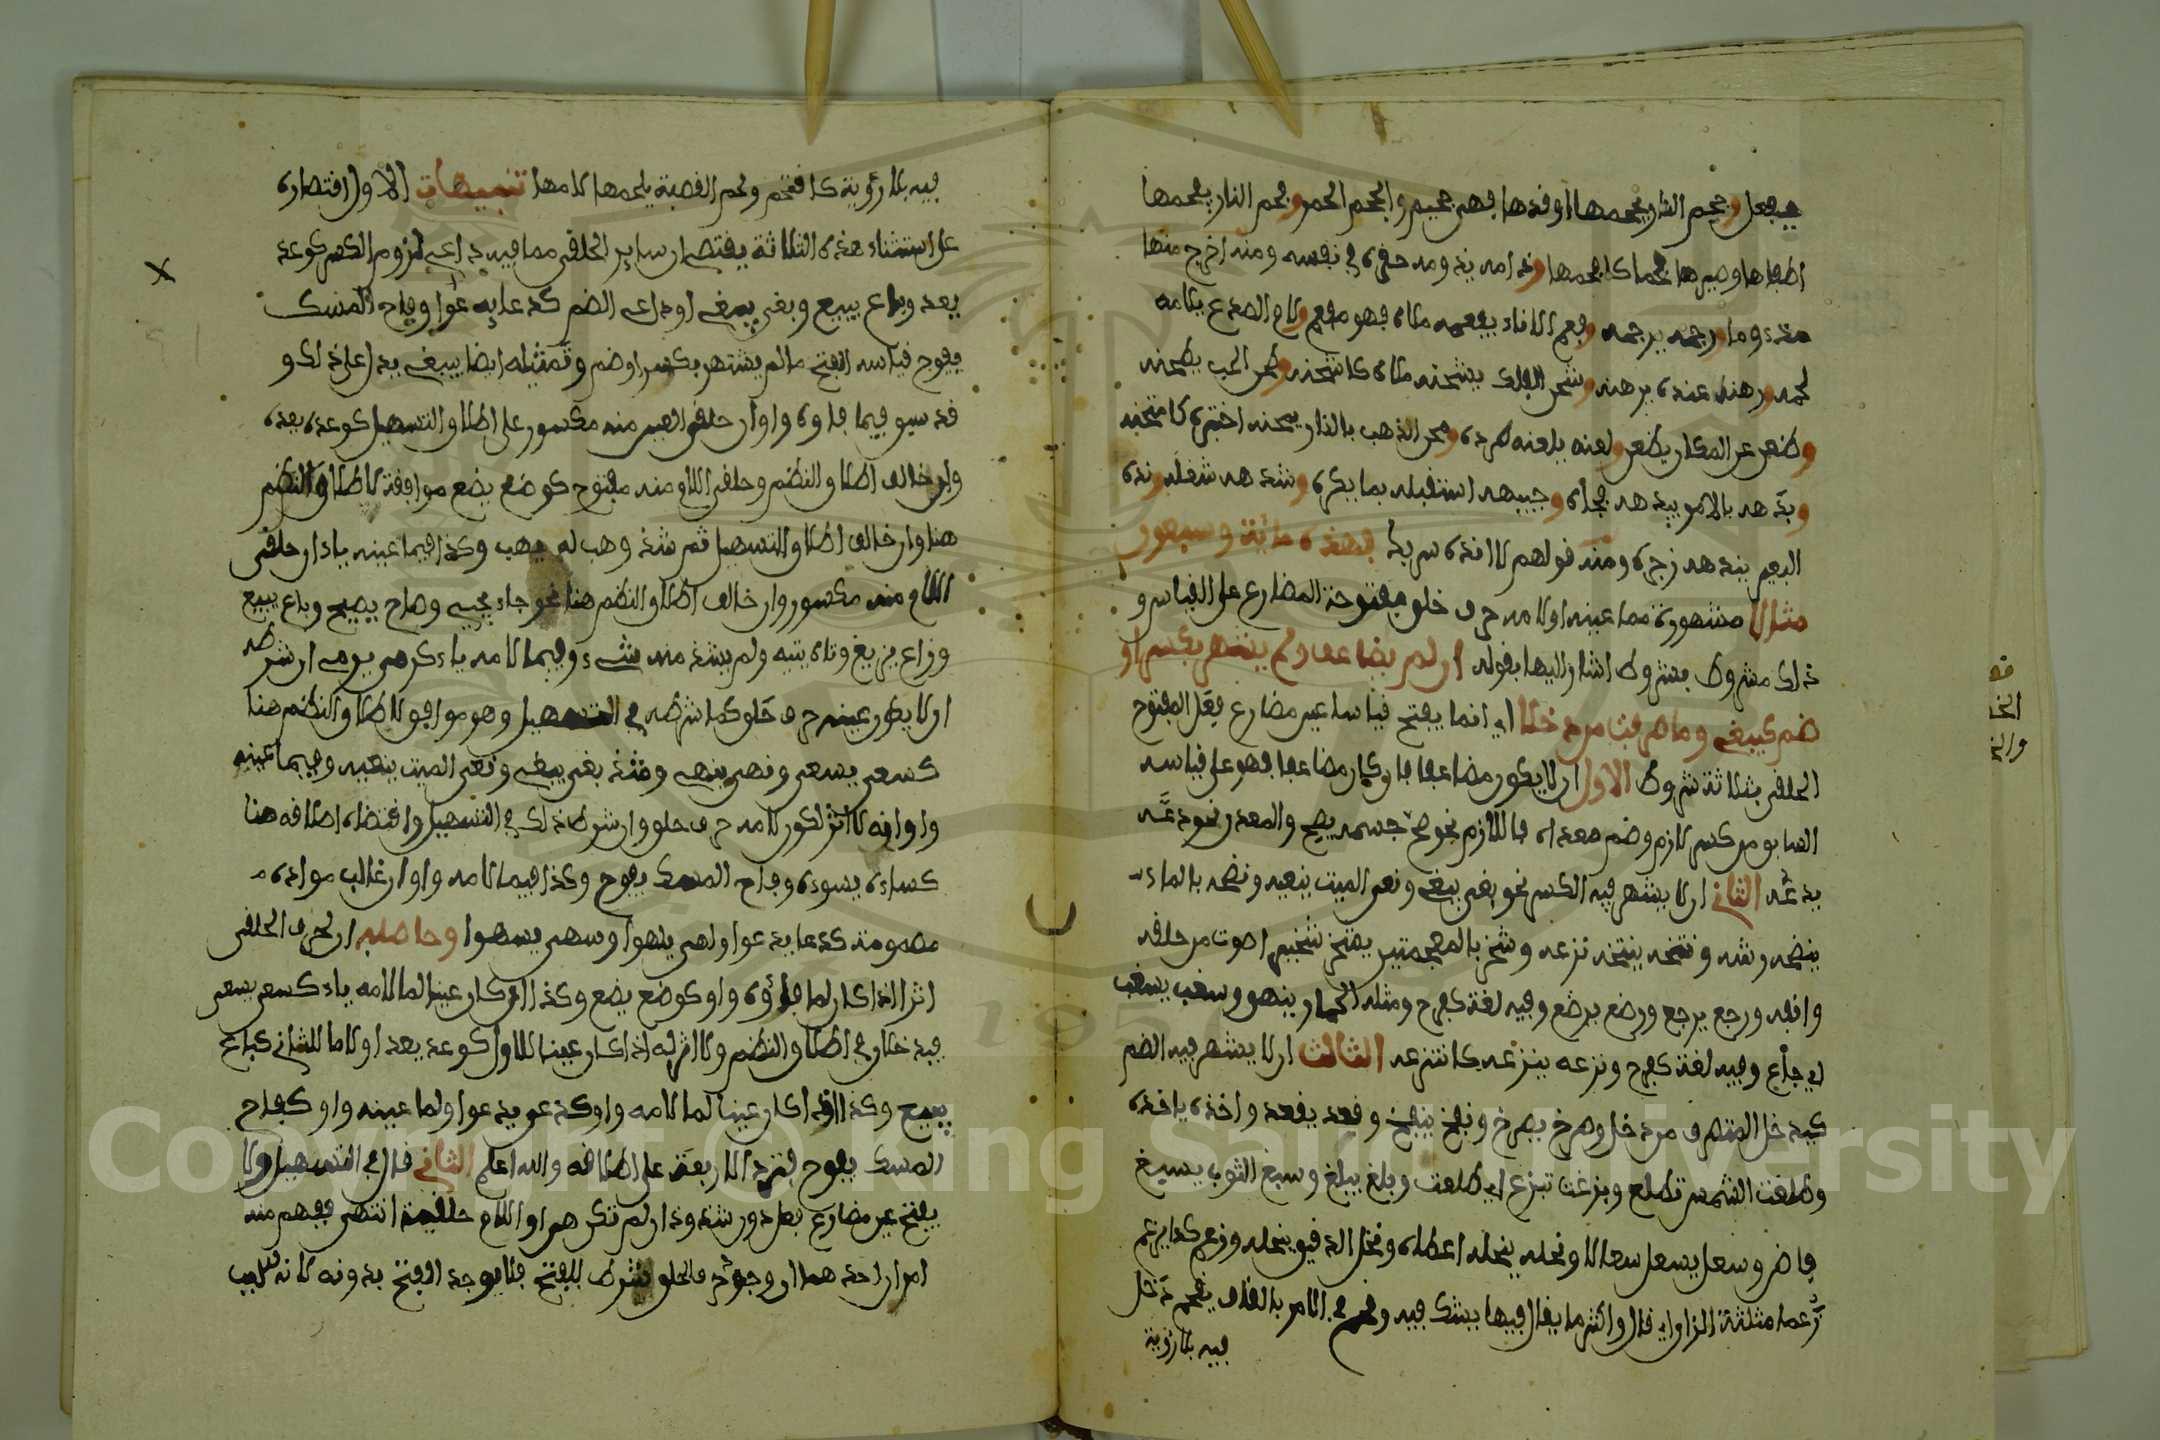 فيفعل وجحم النار يجحمها اوقدها فهي جحيم والجحم الجمر وفحم النار يفحمها
اطفاها وصيرها فحما كافحمها
ومنه اخرج منها
مذءوما ورجمه يرجمه وفعم الاناء يفعمه ملاه فهو مفعم ولام الصدع يلامه
لحمه ورهنه عنده يرهنه وشحن الفلك يشحنه ملاه كاشحنه وطحن الحب يطحنه
وظعن عن المكان يظعن ولعنه يلعنه طرده ومحن الذهب بالنار يمحنه اختبره كامتحنه
وبدهه بالامر يبدهه فجاه وجبهه استقبله بما يكره وشدهه شغله ونده
البعير يندهه زجره ومنه قولهم لا انده سربك فهذه مائة وسبعون
مثالا مشهورة مما عينه او لامه حرف حلق مفتوحة المضارع على القياس و
ذلك مشروط بشروط اشار اليها بقوله ان لم يضاعف ولم يشهر بكسر او
ضم كيبغي وما صرفت من دخلا اي انما يفتح قياسا عين مضارع فعل المفتوح
الحلقي بثلاثة شروط الاول ان لا يكون مضاعفا فان كان مضاعفا فهو على قياسه
السابق من كسر لازم وضم معداه فاللازم نحو صح جسمه يصح والمعدى نحو دعه
يدعه الثاني ان لا يشهر فيه الكسر نحو بغى يبغي ونعى الميت ينعيه ونضحه بالماء
ينضحه رشه ونتخه ينتخه نزعه وشخر بالمعجمتين يشخر شخيرا صوت من حلقه
وانفه ورجع يرجع ورضع يرضع وفيه لغة كفرح ومثله الحمار ينهق وسغب يسغب
اي جاع وفيه لغة كفرح ونزعه ينزعه كانتزعه الثالث ان لا يشهر فيه الضم
كيدخل المتصرف من دخل وصرخ يصرخ ونفخ ينفخ وقعد يقعد واخذه ياخذه
وطلعت الشمس تطلع وبزغت تبزغ اي طلعت وبلغ يبلغ وسبغ الثوب يسبغ
فاض وسعل يسعل سعالا ونحله ينحله اعطاه ونخل الدقيق ينخله وزعم كذا يزعم
زعما مثلثة الزاي قال واكثر ما يقال فيما يشك فيه وقحم في الامر بالقاف يقحم دخل
فيه بلا روية
فيه بلا روية كاقتحم ولحم القصبة يلحمها لامها تنبيهات الاول اقتصاره
على استثناء هذه الثلاثة يقتضي ان ساير الحلقي مما فيه داعي لزوم الكسر كوعد
يعد وباع يبيع وبغى يبغي او داعي الضم كدعا يدعوا وفاح المسك
يفوح قياسه الفتح ما لم يشتهر بكسر او ضم وتمثيله ايضا بيبغي يدل على ذلك و
قد سبق فيما فاوه واو ان حلقي العين منه مكسور على اطلاق التسهيل كوعده يعده
وان خالف اطلاق النظم وحلقي اللام منه مفتوح كوضع يضع موافقة لاطلاق النظم
هنا وان خالف اطلاق التسهيل ثم شذ وهب له يهب وكذا فيما عينه ياء ان حلقي
اللام منه مكسور وان خالف اطلاق النظم هنا نحو جاء يجيء وصاح يصيح وباع يبيع
وزاغ يزيغ وتاه يتيه ولم يشذ منه شيء وفيما لامه ياء كرمى يرمي ان شرطه
ان لا يكون عينه حرف حلق كما شرطه في التسهيل وهو موافق لاطلاق النظم هنا
كسعى يسعى ونهى ينهى وشذ بغى يبغي ونعى الميت ينعيه وفيما عينه
واو انه لا اثر لكون لامه حرف حلق وان شرط ذلك في التسهيل واقتضاه اطلاقه هنا
كساءه يسوءه وفاح المسك يفوح وكذا فيما لامه واو ان غالب مواده
مضمومة كدعا يدعوا ولهى يلهوا وسهى يسهوا وحاصله ان لحرف الحلقي
اثر اذا كان لما فاوه واو كوضع يضع وكذا ان كان عينا لما لامه ياء كسعى يسعى
فيه خلاف اطلاق النظم ولا اثر له اذا كان عينا للاول كوعد يعد او لاما للثاني كباع
يبيع وكذا اذا كان عينا لما لامه واو كدعى يدعوا ولما عينه واو كفاح
المسك يفوح فترد الاربعة على اطلاقه والله اعلم الثاني قال في التسهيل ولا
يفتح عين مضارع فعل دون شذوذ ان لم تكن هي او اللام حلقية انتهى ففهم منه
ان احدهما اي وجود الحلق شرط للفتح فلا يوجد الفتح بدونه لا انه سبب